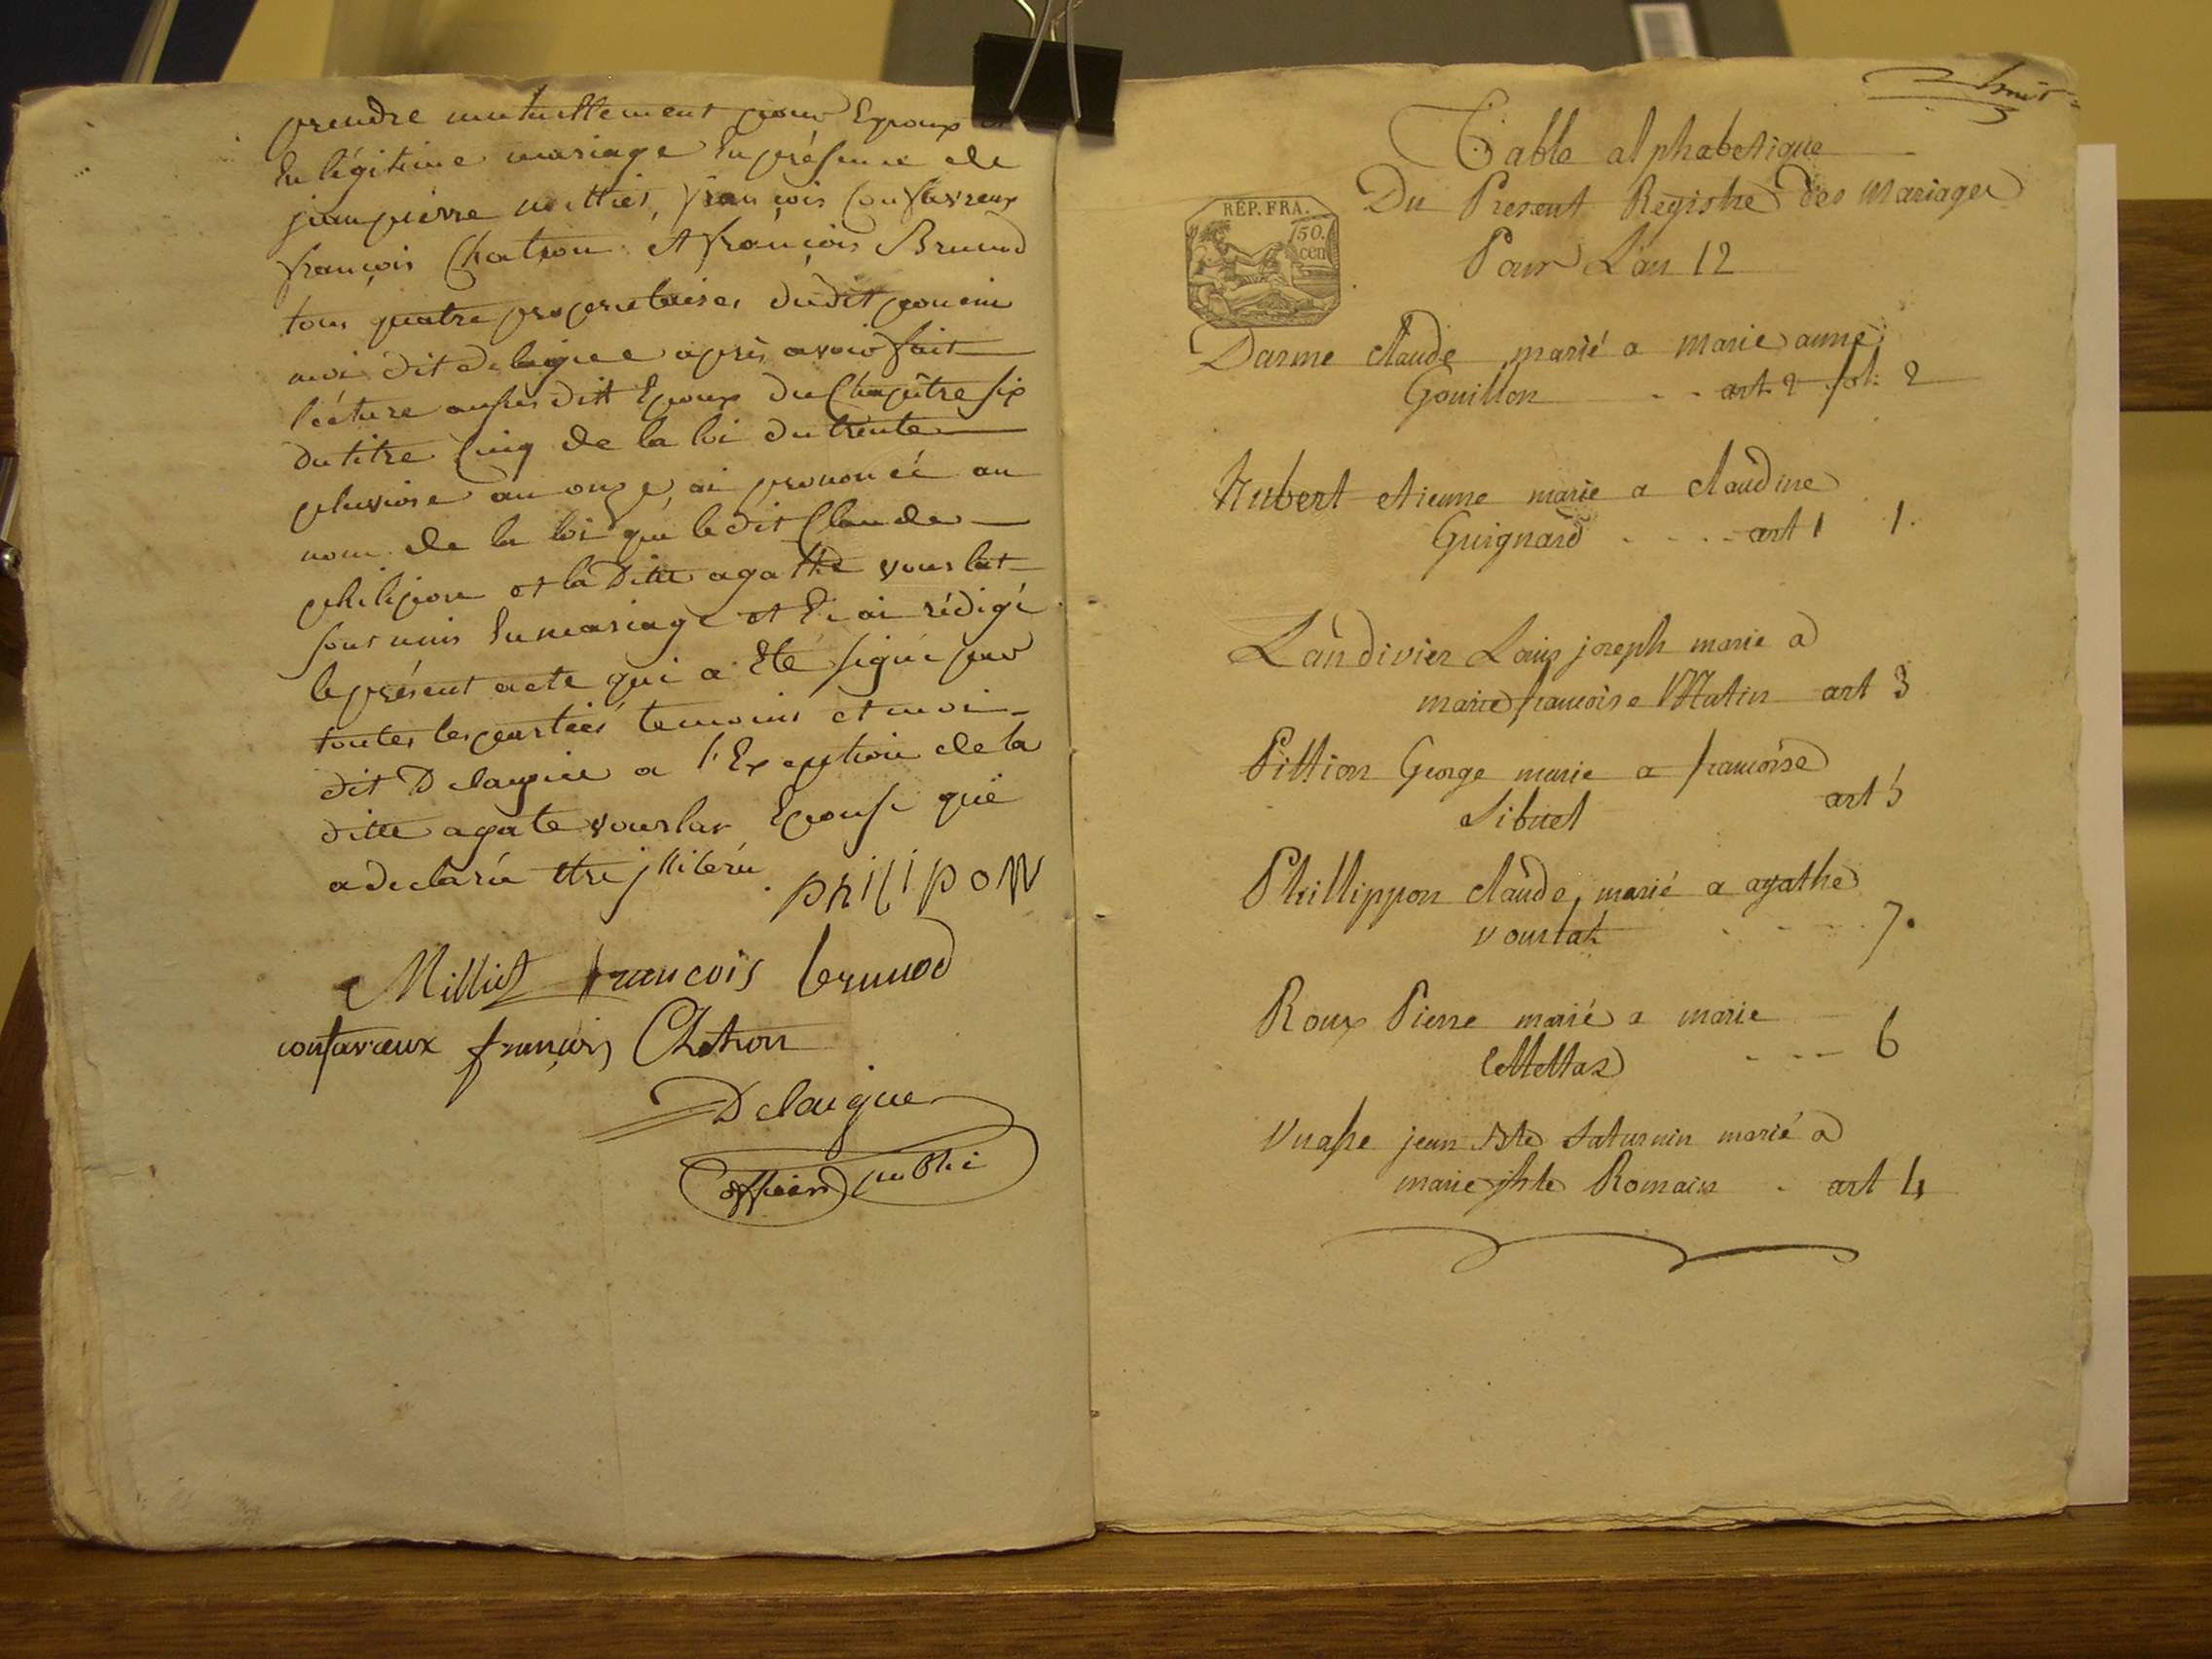 prendre mutuellement pour Epoux et
En légitime mariage En présence de
jean pierre milliet, françois Confavreux
françois Chatron et françois Brunod
tous quatre proprietaires dudit
moi dit Delaigue après avoir fait
lécture auxdit Epoux du Chapitre six
du titre Cinq de la loi du trente
pluviose an onze, ai prononcé au
nom de la loi que le dit Claude
philipon et la ditte agathe vourlat
sont unis En mariage et En ai rédigé
le présent acte qui a Eté signé par
toutes les partiés temoins et moi
dit Delaigue a l'Exeption de la
ditte agate vourlat Epouse qui
a déclarée être jlliterée
philipon
Milliet francois brunod
confavreux françois Chatron
Delaigue
officier publi
huit
Table alphabetique
Du Present Registre des Mariages
Pour L'an 12
REP. FRA.
50.
cen
Darme claude marié a marie anne
Gouillon . . art. 2 fol: 2
Hubert etienne marie a claudine
Guignard . . . . art 1 1.
Landivier Louis joseph marie a
marie francoise art 3
Pittion George marie a francoise
Sibuet art 5
Phillippon claude, marié a agathe
vourlat . . . . 7.
Roux Pierre marié a marie
. . . 6
jean Bte Saturnin marié a
marie Romain . art 4